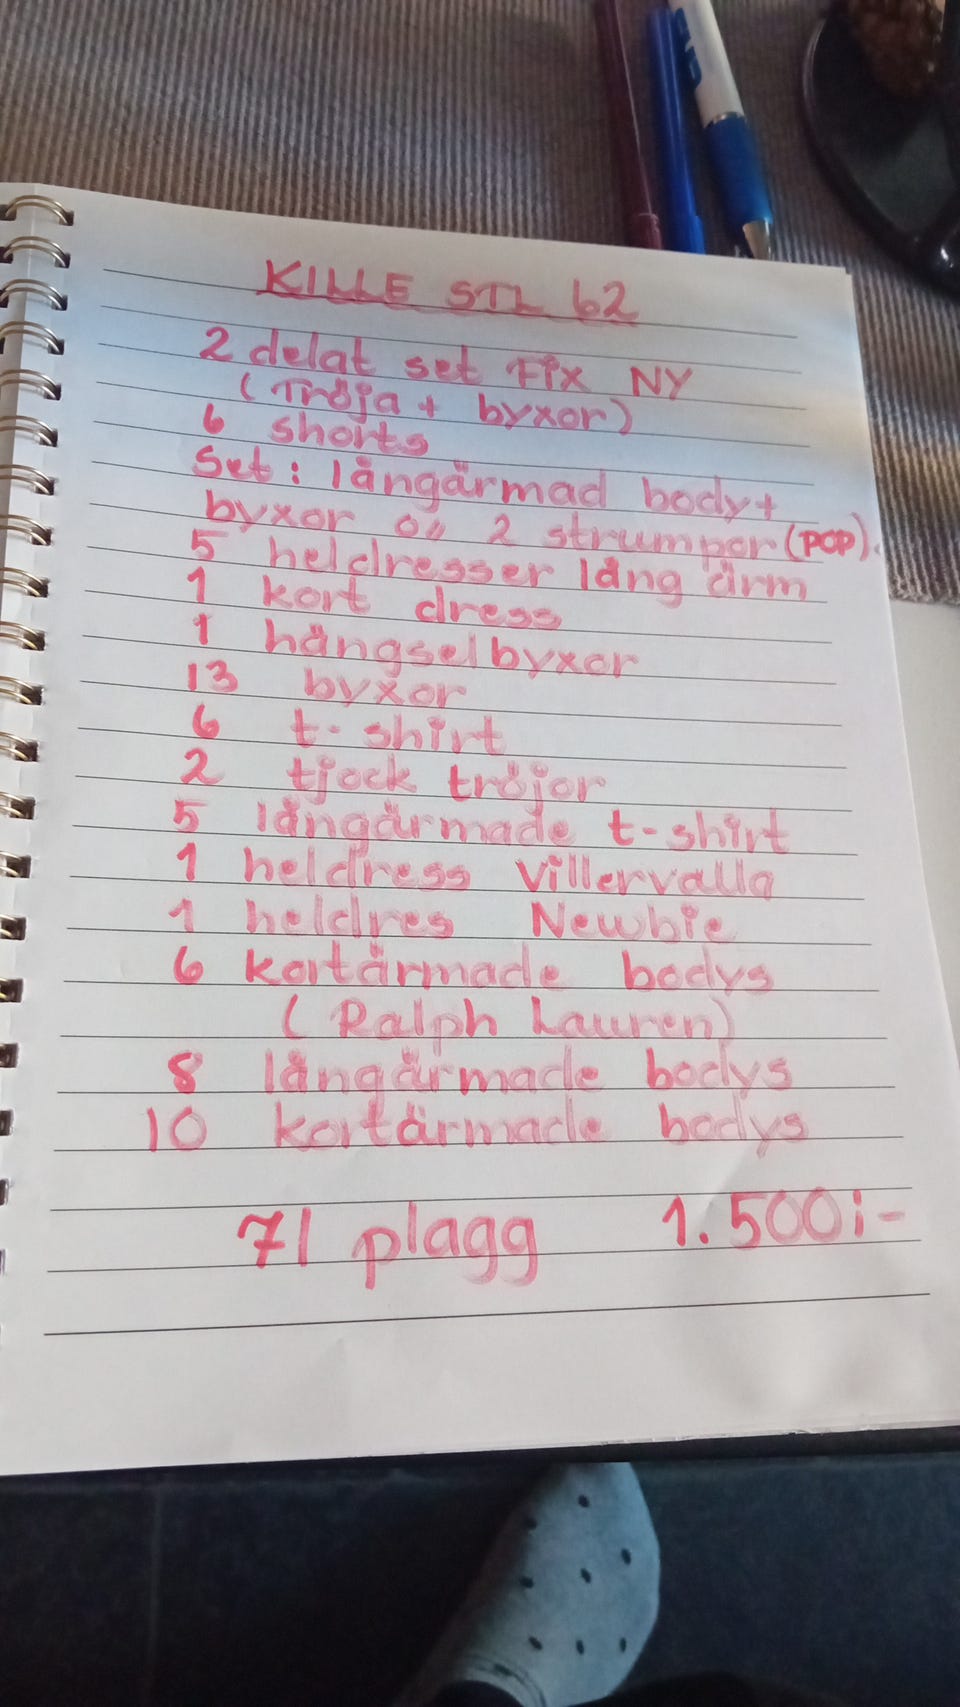 KILLE STL 62
2 delat set Fix NY
(Tröja + byxor)
6 shorts
Set: långärmad body+
byxor o 2 strumpor (POP).
5 heldresser lång ärm
1 kort dress
1 hängselbyxor
13 byxor
6 t-shirt
2 tjock tröjor
5 långärmade t-shirt
1 heldress Villervalla
1 heldres Newbie
6 kortärmade bodys
(Ralph Lauren)
8 långärmade bodys
10 kortärmade bodys
71 plagg 1.500:-